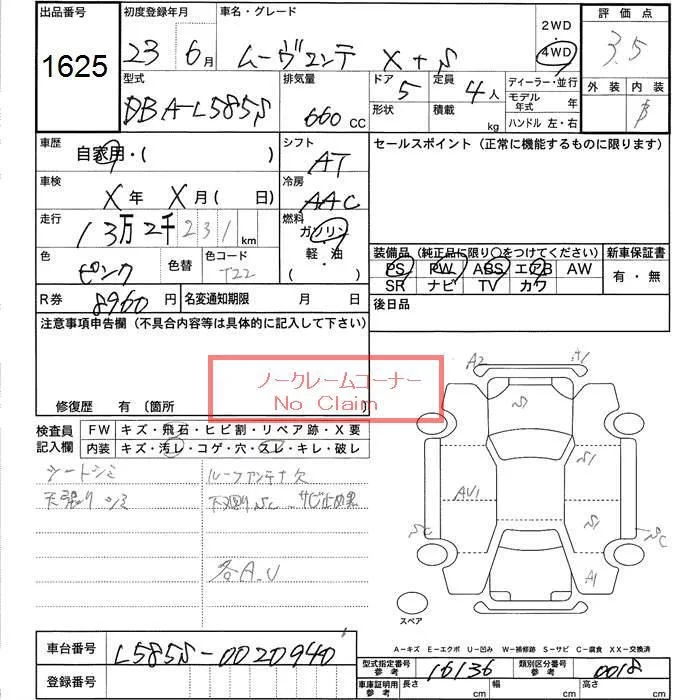 出品番号
1625
初度登録年月
23 6月
車名・グレード
ムーヴコンテ X+S
2WD
4WD
評価点
3.5
外装 内装
B
型式
DBA-L585S
排気量
660 CC
ドア 5
形状
定員 4人
積載 kg
ディーラー・並行
モデル年式 年
ハンドル 左・右
車歴
自家用・( )
シフト
AT
セールスポイント(正常に機能するものに限ります)
車検
X年 X月( 日)
冷房
AAC
走行
13万2千231km
燃料
ガソリン
軽・油
( )
色
ピンク
色替
色コード
T22
装備品(純正品に限り○をつけてください)
新車保証書
PS PW ABS エアB AW
SR ナビ TV カワ
有・無
R券
8960円
名変通知期限 月 日
後日品
注意事項申告欄(不具合内容等は具体的に記入して下さい)
ノークレームコーナー
No Claim
修復歴 有〔箇所 〕
検査員記入欄
FW キズ・飛石・ヒビ割・リペア跡・X要
内装 キズ・汚レ・コゲ・穴・スレ・キレ・破レ
シートシミ
ルーフアンテナ欠
天張り シミ
下廻りSC サビ止め黒
各A.U
A2
+1
S
S1
AU1
S1
SC
SC
A1
スペア
A-キズ E-エクボ U-凹み W-補修跡 S-サビ C-腐食 XX-交換済
車台番号
L585S-0020940
登録番号
型式指定番号 参考
16136
類別区分番号 参考
0018
車庫証明用 参考
長さ cm 幅 cm 高さ cm